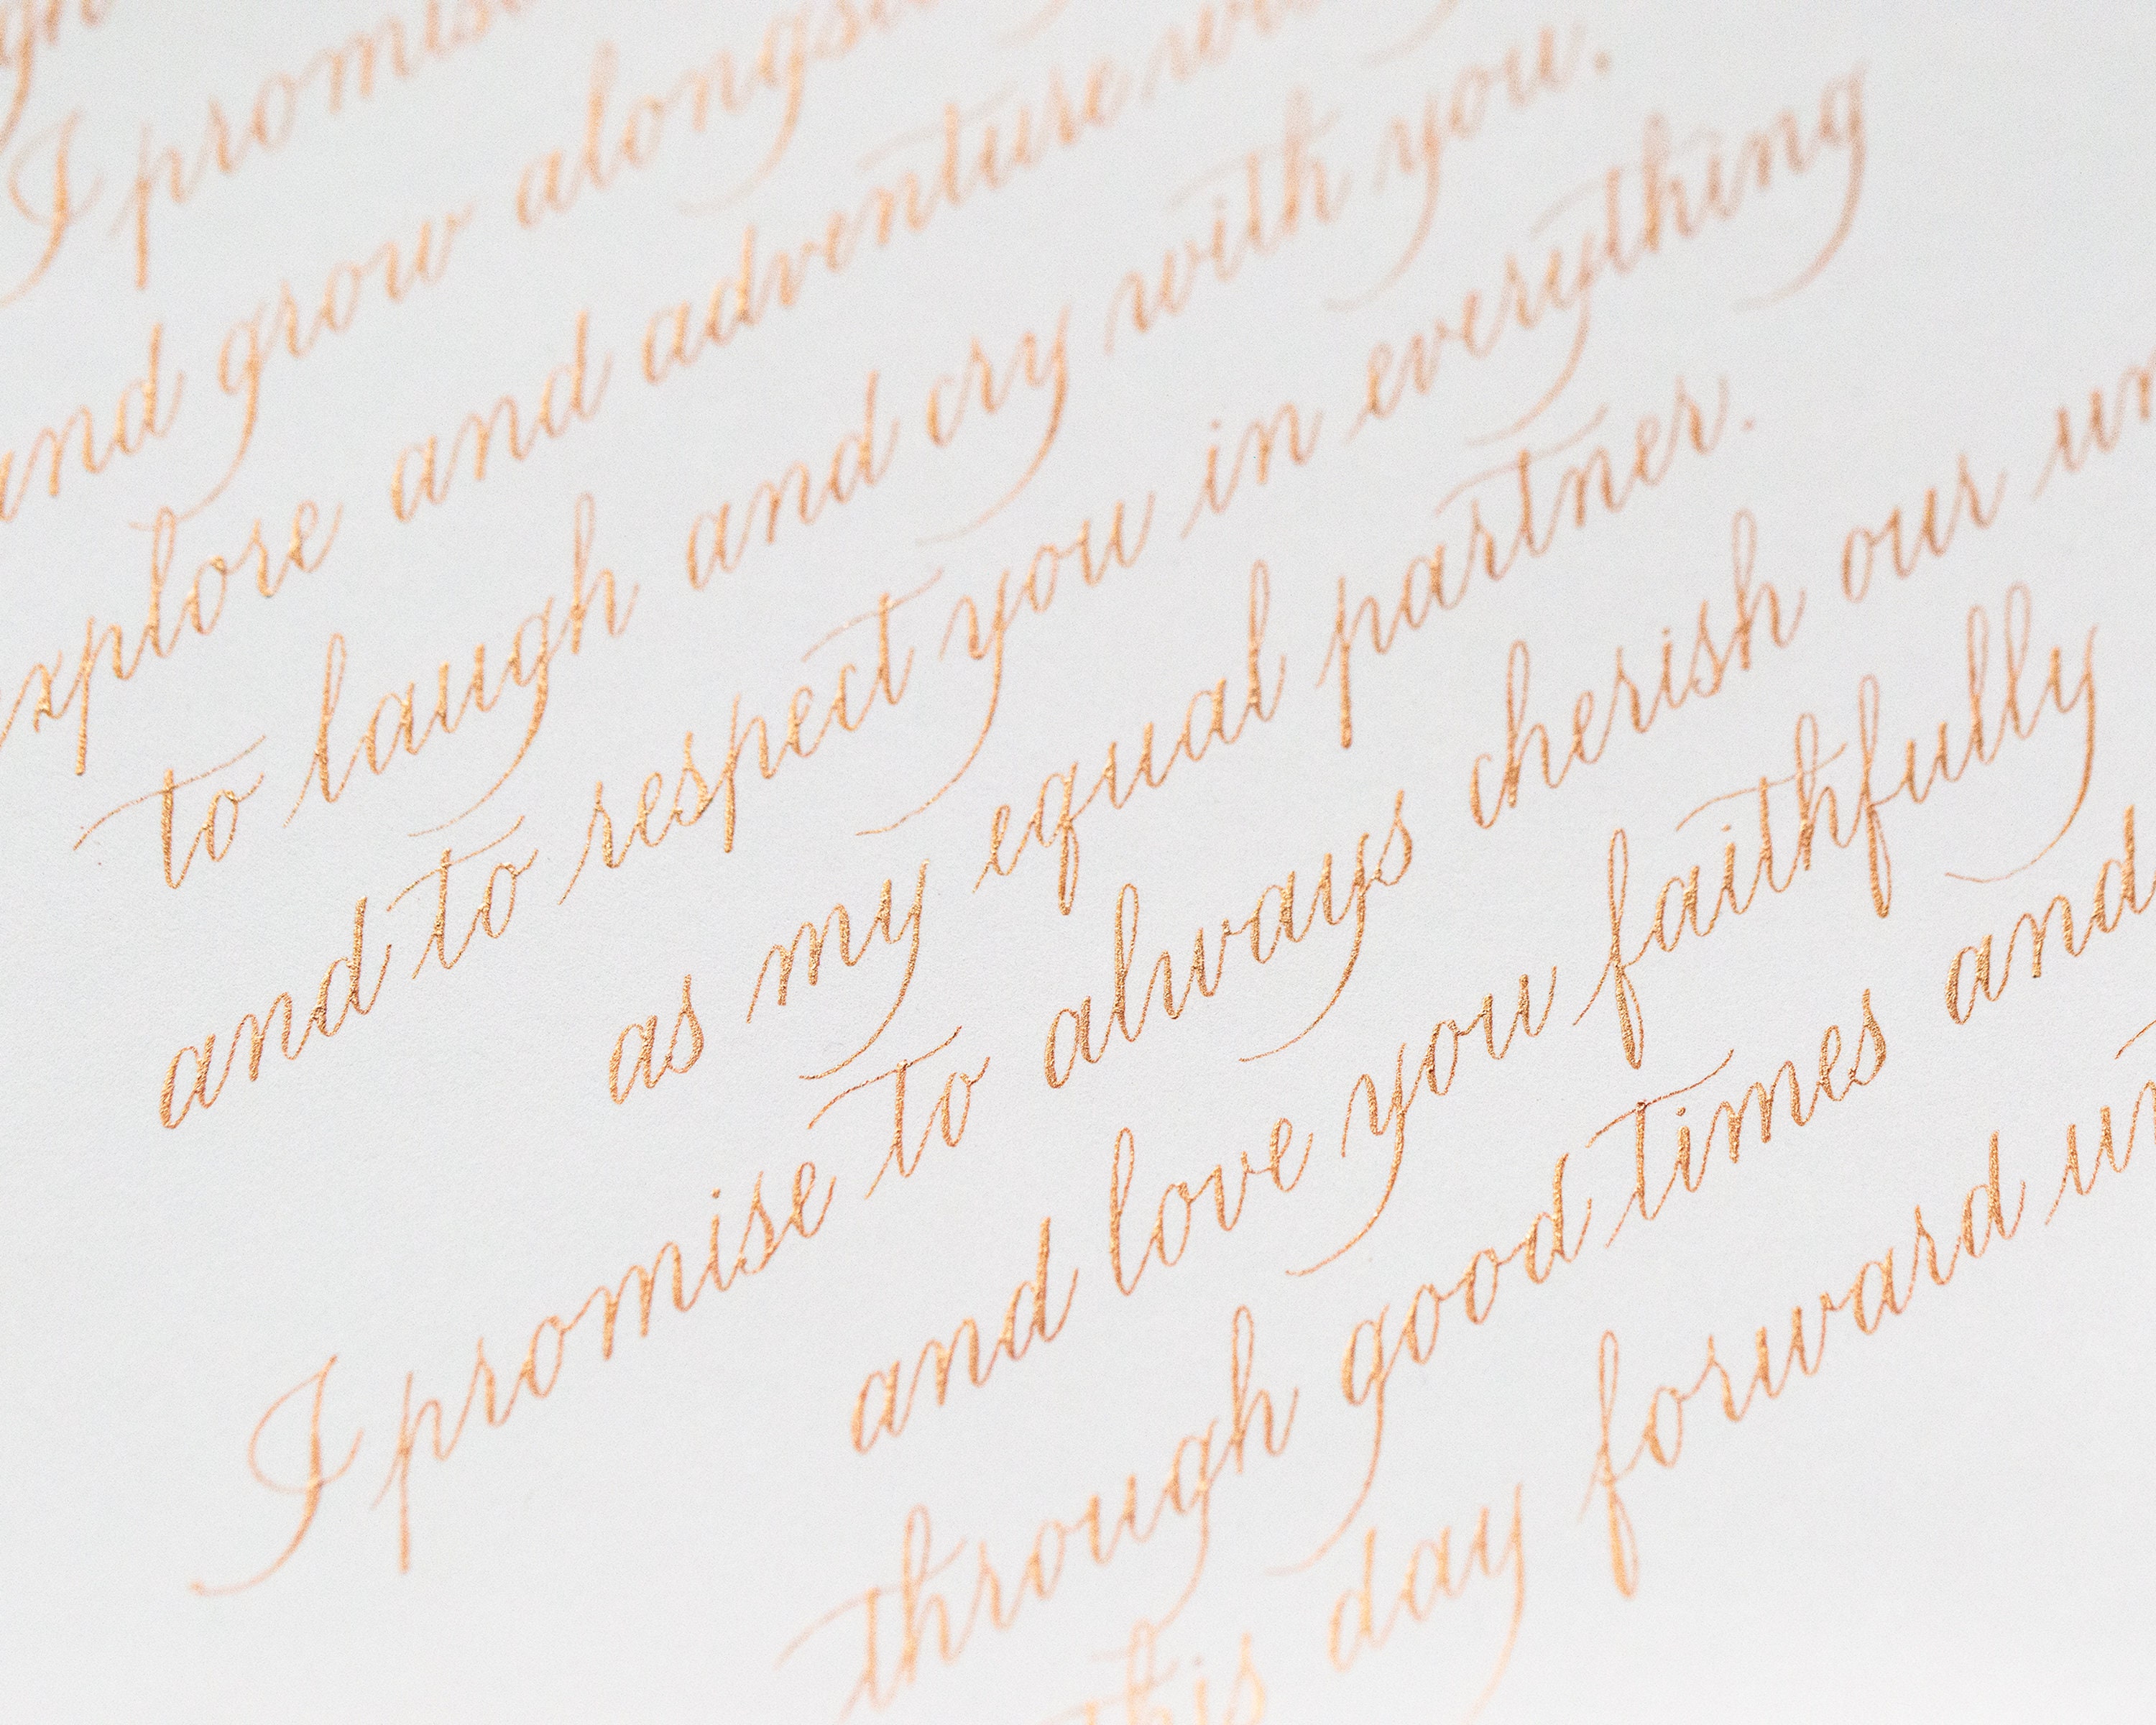 I promise
and grow alongsi
explore and adventure wi
to laugh and cry with you.
and to respect you in everything
as my equal partner.
I promise to always cherish our un
and love you faithfully
through good times and
this day forward un